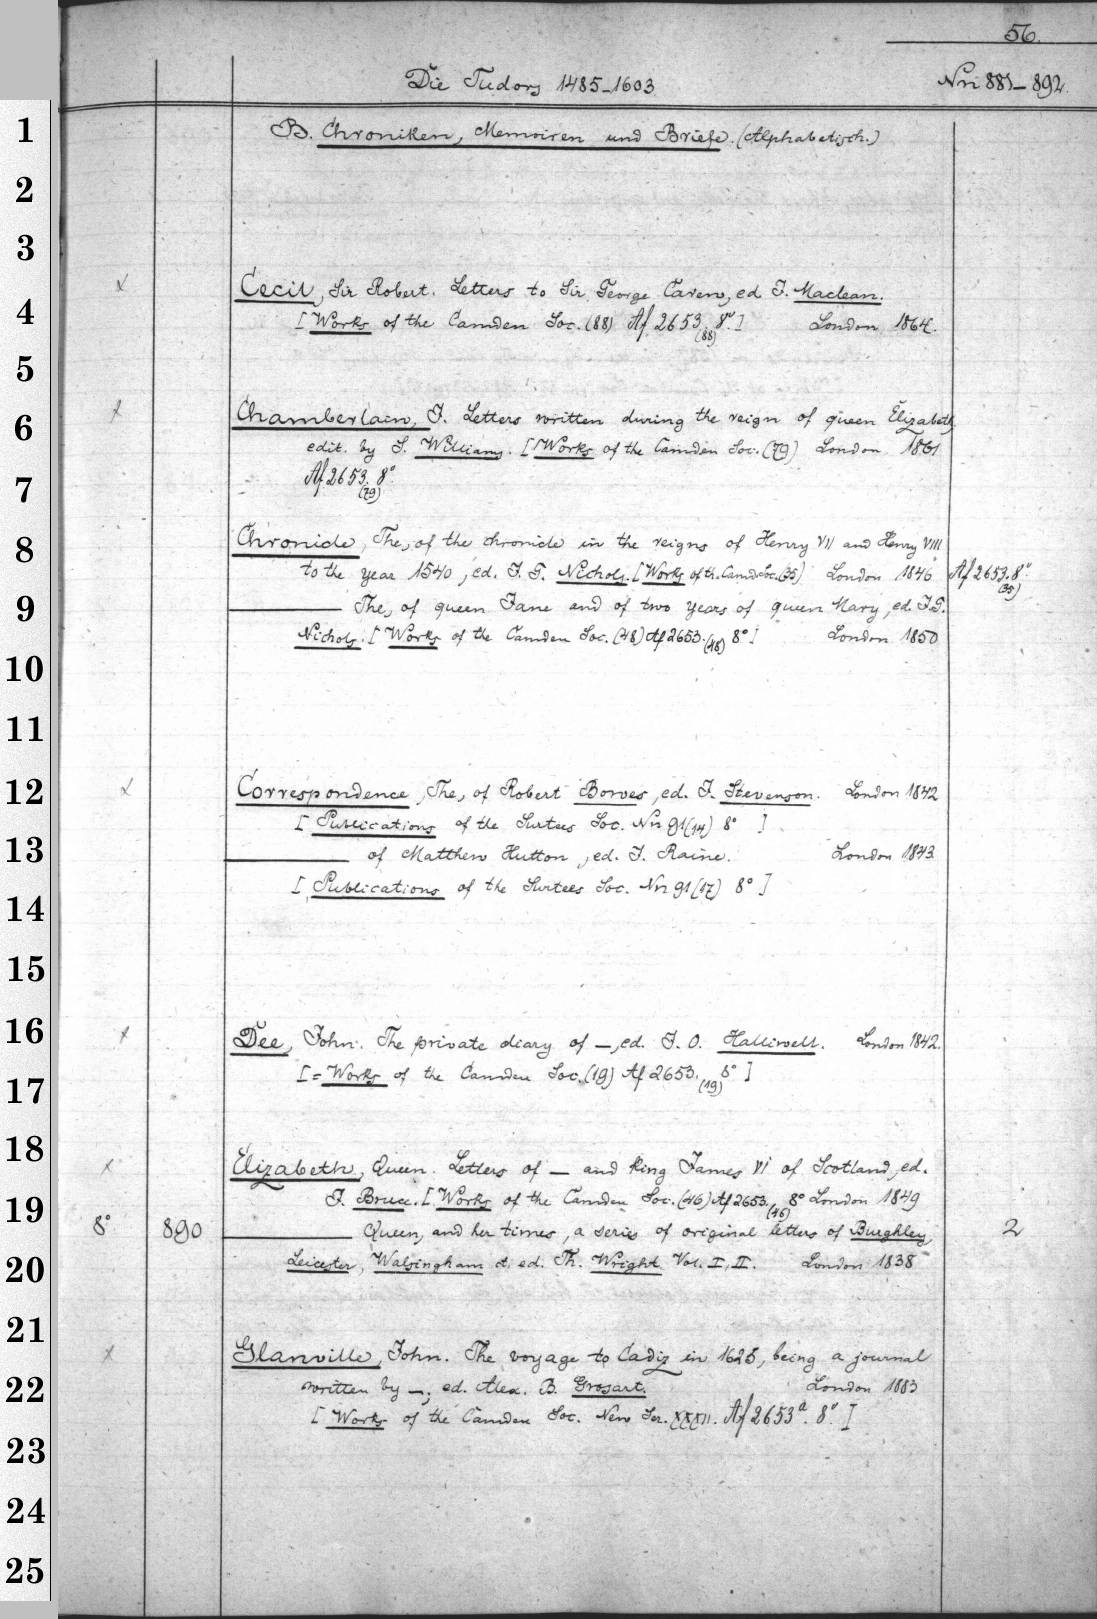 56.
Die Tudors 1485-1603 Nri 881-892.
1 B. Chroniken, Memoiren und Briefe. (Alphabetisch.)
2
3
x Cecil, Sir Robert. Letters to Sir George Carew, ed J. Maclean.
4 [Works of the Camden Soc. (88) Af 2653 8°.] London 1864.
(88)
5
x Chamberlain, J. Letters written during the reign of queen Elizabeth,
6 edit. by S. Williams. [Works of the Camden Soc. (79) London 1861
7 Af 2653. 8°.
(79)
8 Chronicle, The, of the chronicle in the reigns of Henry VII and Henry VIII
to the year 1540, ed. J. G. Nichols. [Works of th. Camd. Soc. (35) London 1846. Af 2653. 8°.
(35)
9 — The, of queen Jane and of two years of queen Mary, ed. J. G.
Nichols. [Works of the Camden Soc. (48) Af 2653. 8°] London 1850
(48)
10
11
x 12 Correspondence, The, of Robert Bowes, ed. J. Stevenson. London 1842
[Publications of the Surtees Soc. Nr. 91 (14) 8° ]
13 — of Matthew Hutton, ed. J. Raine. London 1843
14 [Publications of the Surtees Soc. Nr. 91 (17) 8° ]
15
x 16 Dee, John. The private diary of —, ed. J. O. Halliwell. London 1842.
17 [= Works of the Camden Soc. (19) Af 2653. 8° ]
(19)
18
x Elizabeth, Queen. Letters of — and King James VI of Scotland, ed.
19 J. Bruce. [Works of the Camden Soc. (46) Af 2653. 8° London 1849
(46)
8° 890 — Queen, and her times, a series of original letters of Burghley, 2
20 Leicester, Walsingham ed. Th. Wright Vol. I, II. London 1838
21
x Glanville, John. The voyage to Cadiz in 1625, being a journal
22 written by —, ed. Alex. B. Grosart. London 1883
[Works of the Camden Soc. New Ser. XXXII. Af 2653ª. 8°. ]
23
24
25